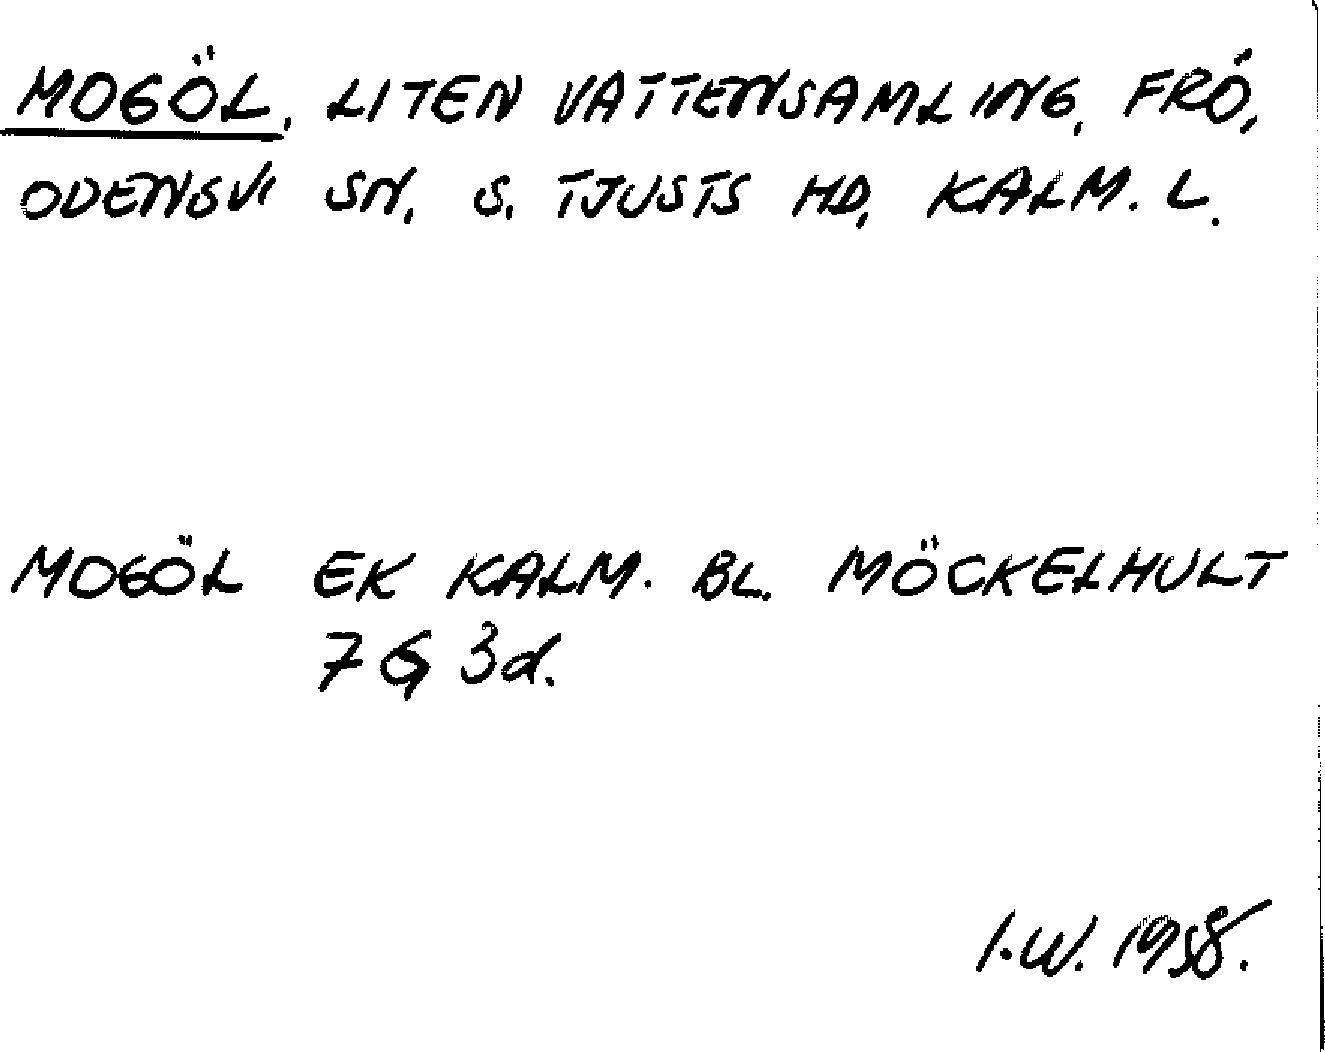 MOGÖL, LITEN VATTENSAMLING, FRÓ,
ODENSVI SN, S. TJUSTS HD, KALM. L.
MOGÖL EK KALM. BL. MÖCKELHULT
7G 3d.
I.W. 1958.